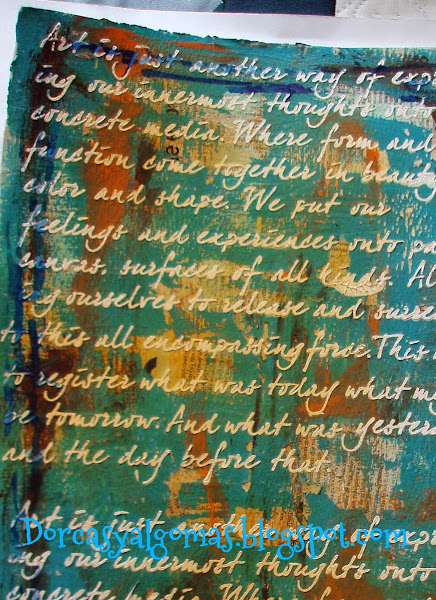 Art is just another way of expr
ing our innermost thoughts onto
concrete media. Where form and
function come together in beauty
color and shape. We put our
feelings and experiences onto pa
canvas, surfaces of all kinds. Al
ing ourselves to release and surre
to this all encompassing force. This
to register what was today what my
be tomorrow. And what was yester
and the day before that.
Art is just another way of expre
Dorcasyalgomas.blogspot.com
ing our innermost thoughts onto
concrete media. Where form and